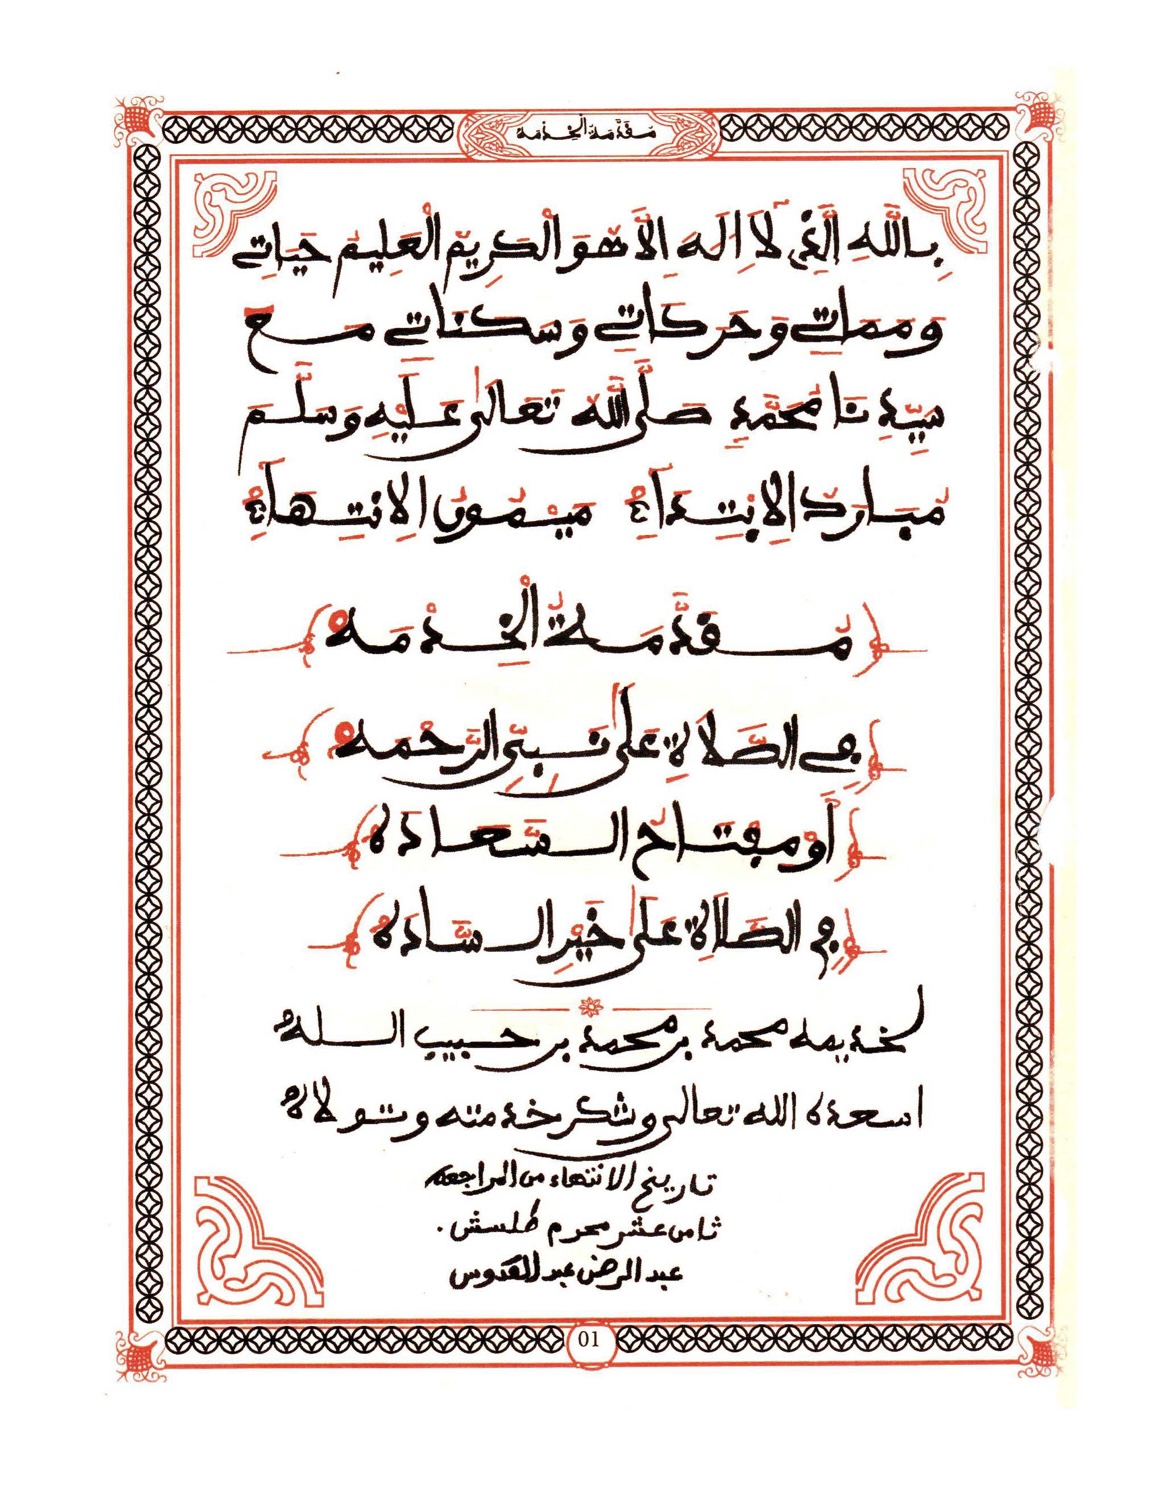 مقدّمة الخدمه
بِاللَّهِ الَّذِي لَا إِلَهَ إِلَّا هُوَ الْكَرِيمُ الْعَلِيمُ حَيَاتِي
وَمَمَاتِي وَحَرَكَاتِي وَسَكَنَاتِي مَعَ
سَيِّدِنَا مُحَمَّدٍ صَلَّى اللَّهُ تَعَالَى عَلَيْهِ وَسَلَّمَ
مُبَارَكُ الْاِبْتِدَاءِ مَيْمُونُ الْاِنْتِهَاءِ
مُقَدَّمَةُ الْخِدْمَه
فِي الصَّلَاةِ عَلَى نَبِيِّ الرَّحْمَه
أَوْ مِفْتَاحُ السَّعَادَه
فِي الصَّلَاةِ عَلَى خَيْرِ السَّادَه
لخديمه محمد بن محمد بن حبيب الله
اسعده الله تعالى وشكر خدمته وتولاه
تاريخ الانتهاء من المراجعه
ثامن عشر محرم
عبد الرحمن عبد القدوس
01